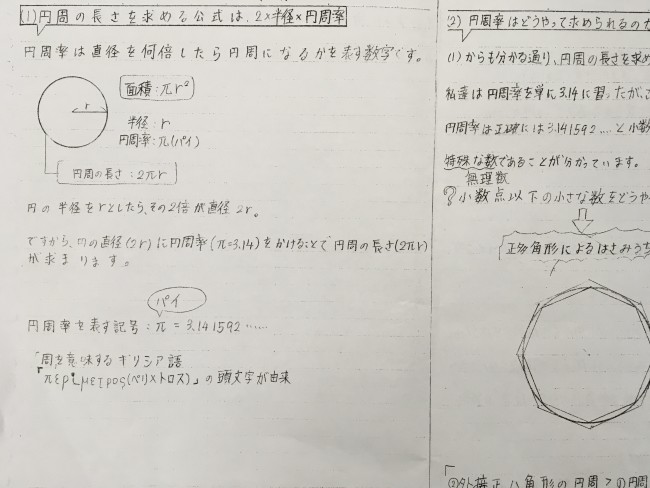 (1)円周の長さを求める公式は、2×半径×円周率
円周率は直径を何倍したら円周になるかを表す数字です。
r
面積:πr²
半径:r
円周率:π(パイ)
円周の長さ:2πr
円の半径をrとしたら、その2倍が直径2r。
ですから、円の直径(2r)に円周率(π=3.14)をかけることで円周の長さ(2πr)
が求まります。
パイ
円周率を表す記号:π = 3.141592……
「周を意味するギリシア語
「περίμετρος(ペリメトロス)」の頭文字が由来
(2)円周率はどうやって求められるの
(1)からも分かる通り、円周の長さを求め
私達は円周率を単に3.14に習ったが、
円周率は正確には3.141592....と小数
特殊な数であることが分かっています。
無理数
?小数点以下の小さな数をどうや
正多角形によるはさみうち
外接正八角形の円周>の円周